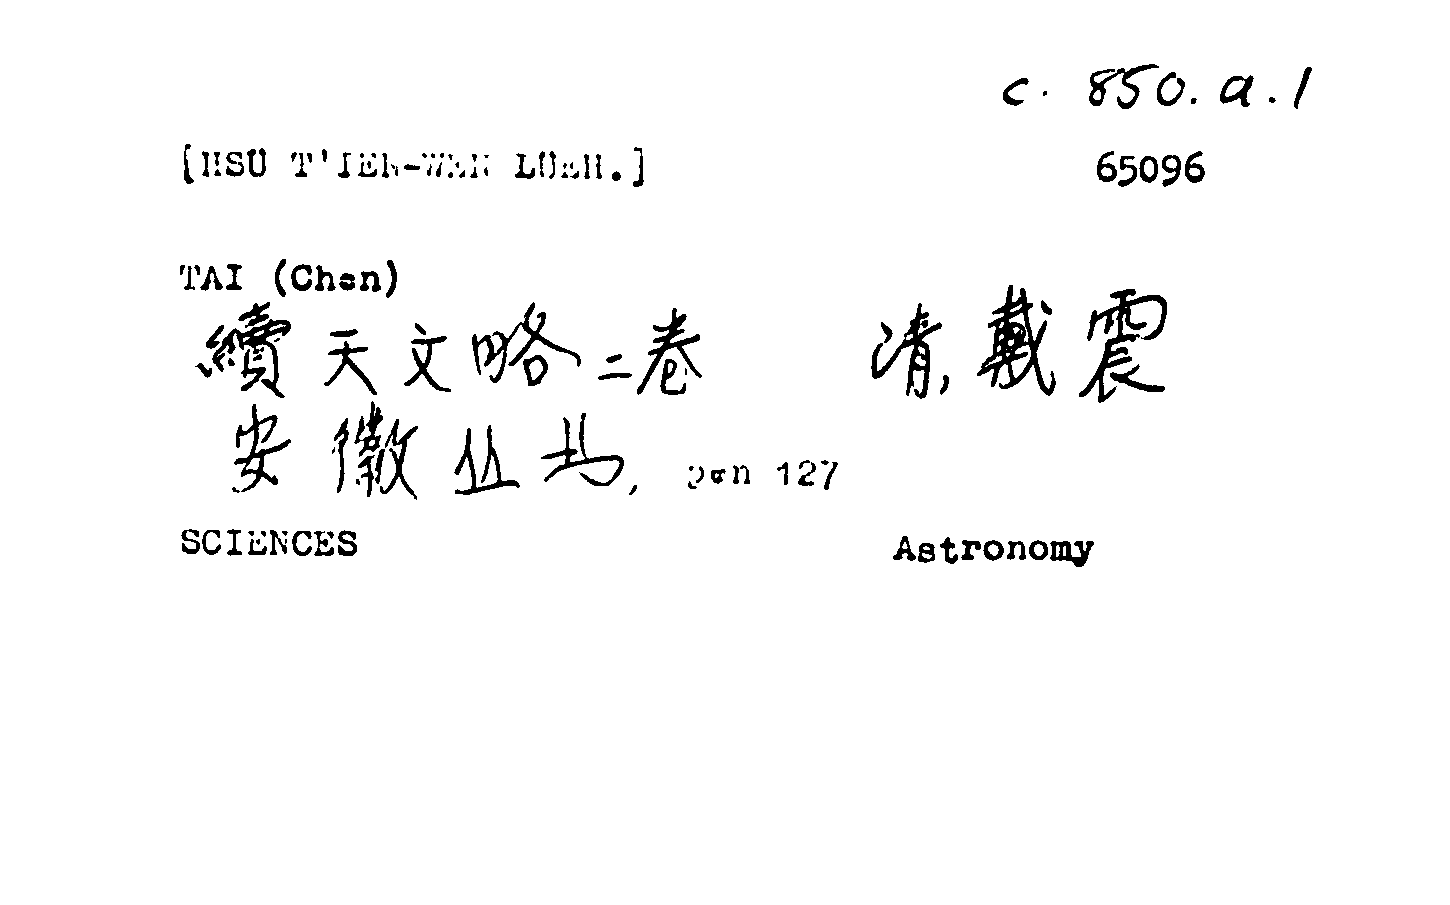 c. 850.a.1
[HSU T'IEN-WEN LÜEH.] 65096
TAI (Chen)
續天文略二卷 清,戴震
安徽丛书, pen 127
SCIENCES Astronomy